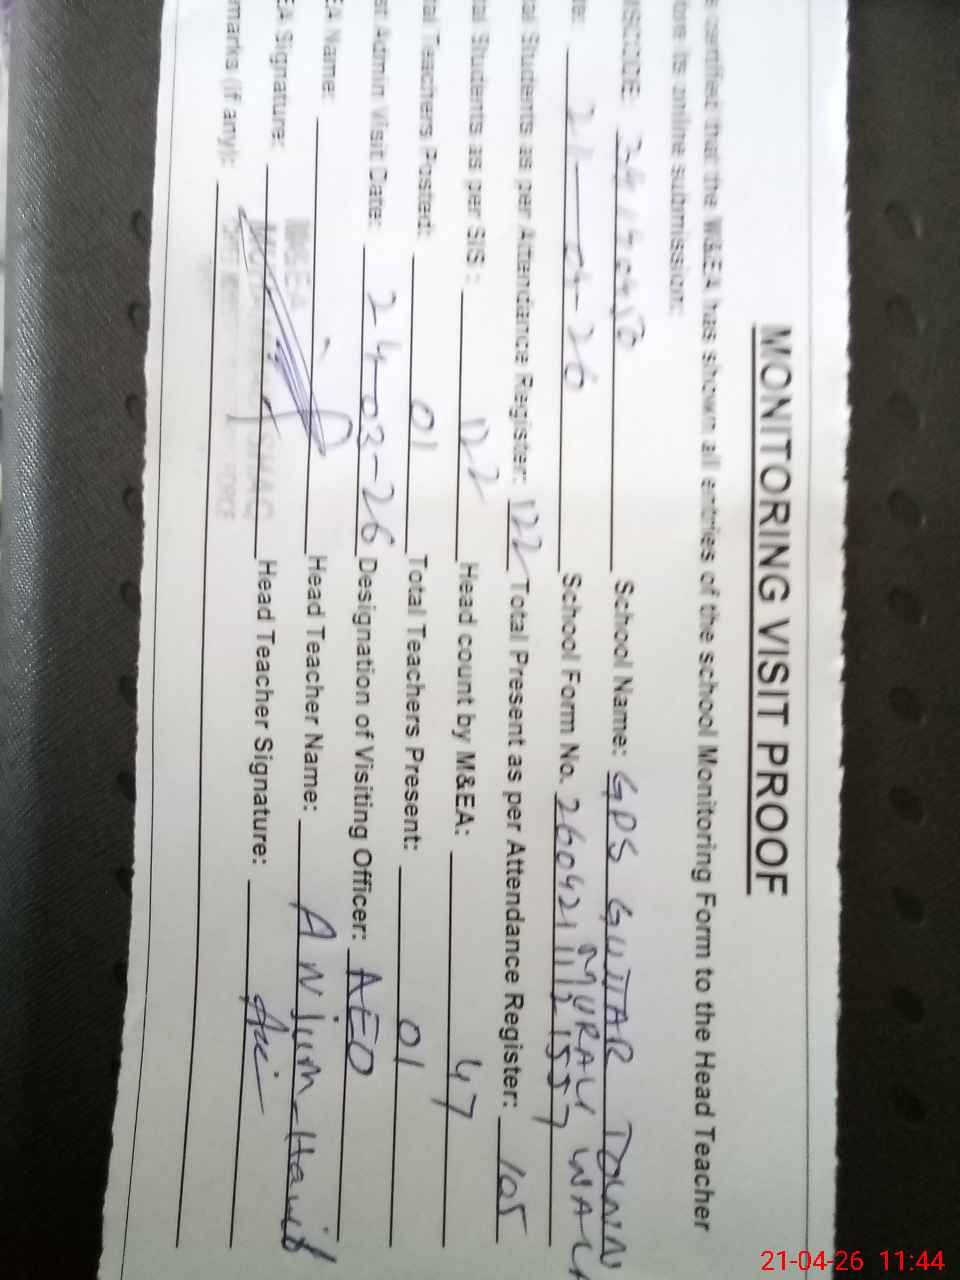 MONITORING VISIT PROOF
certified that the M&EA has shown all entries of the school Monitoring Form to the Head Teacher
before its online submission:
School Name: GPS GUJJAR TOWN
MURALI WALA
21-04-26 School Form No. 2604211121557
Students as per Attendance Register: 122 Total Present as per Attendance Register: 105
Students as per SIS: 122 Head count by M&EA: 47
Teachers Posted: 01 Total Teachers Present: 01
Admin Visit Date: 24-03-26 Designation of Visiting Officer: AEO
EA Name: Head Teacher Name: Anjum
EA Signature: Head Teacher Signature:
marks (if any):
21-04-26 11:44